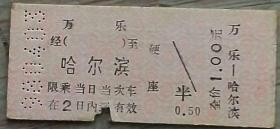 万乐
经( )至 硬座
哈尔滨
限乘当日当次车
在2日内 有效
半
0.50
全价1.00元
万乐—哈尔滨